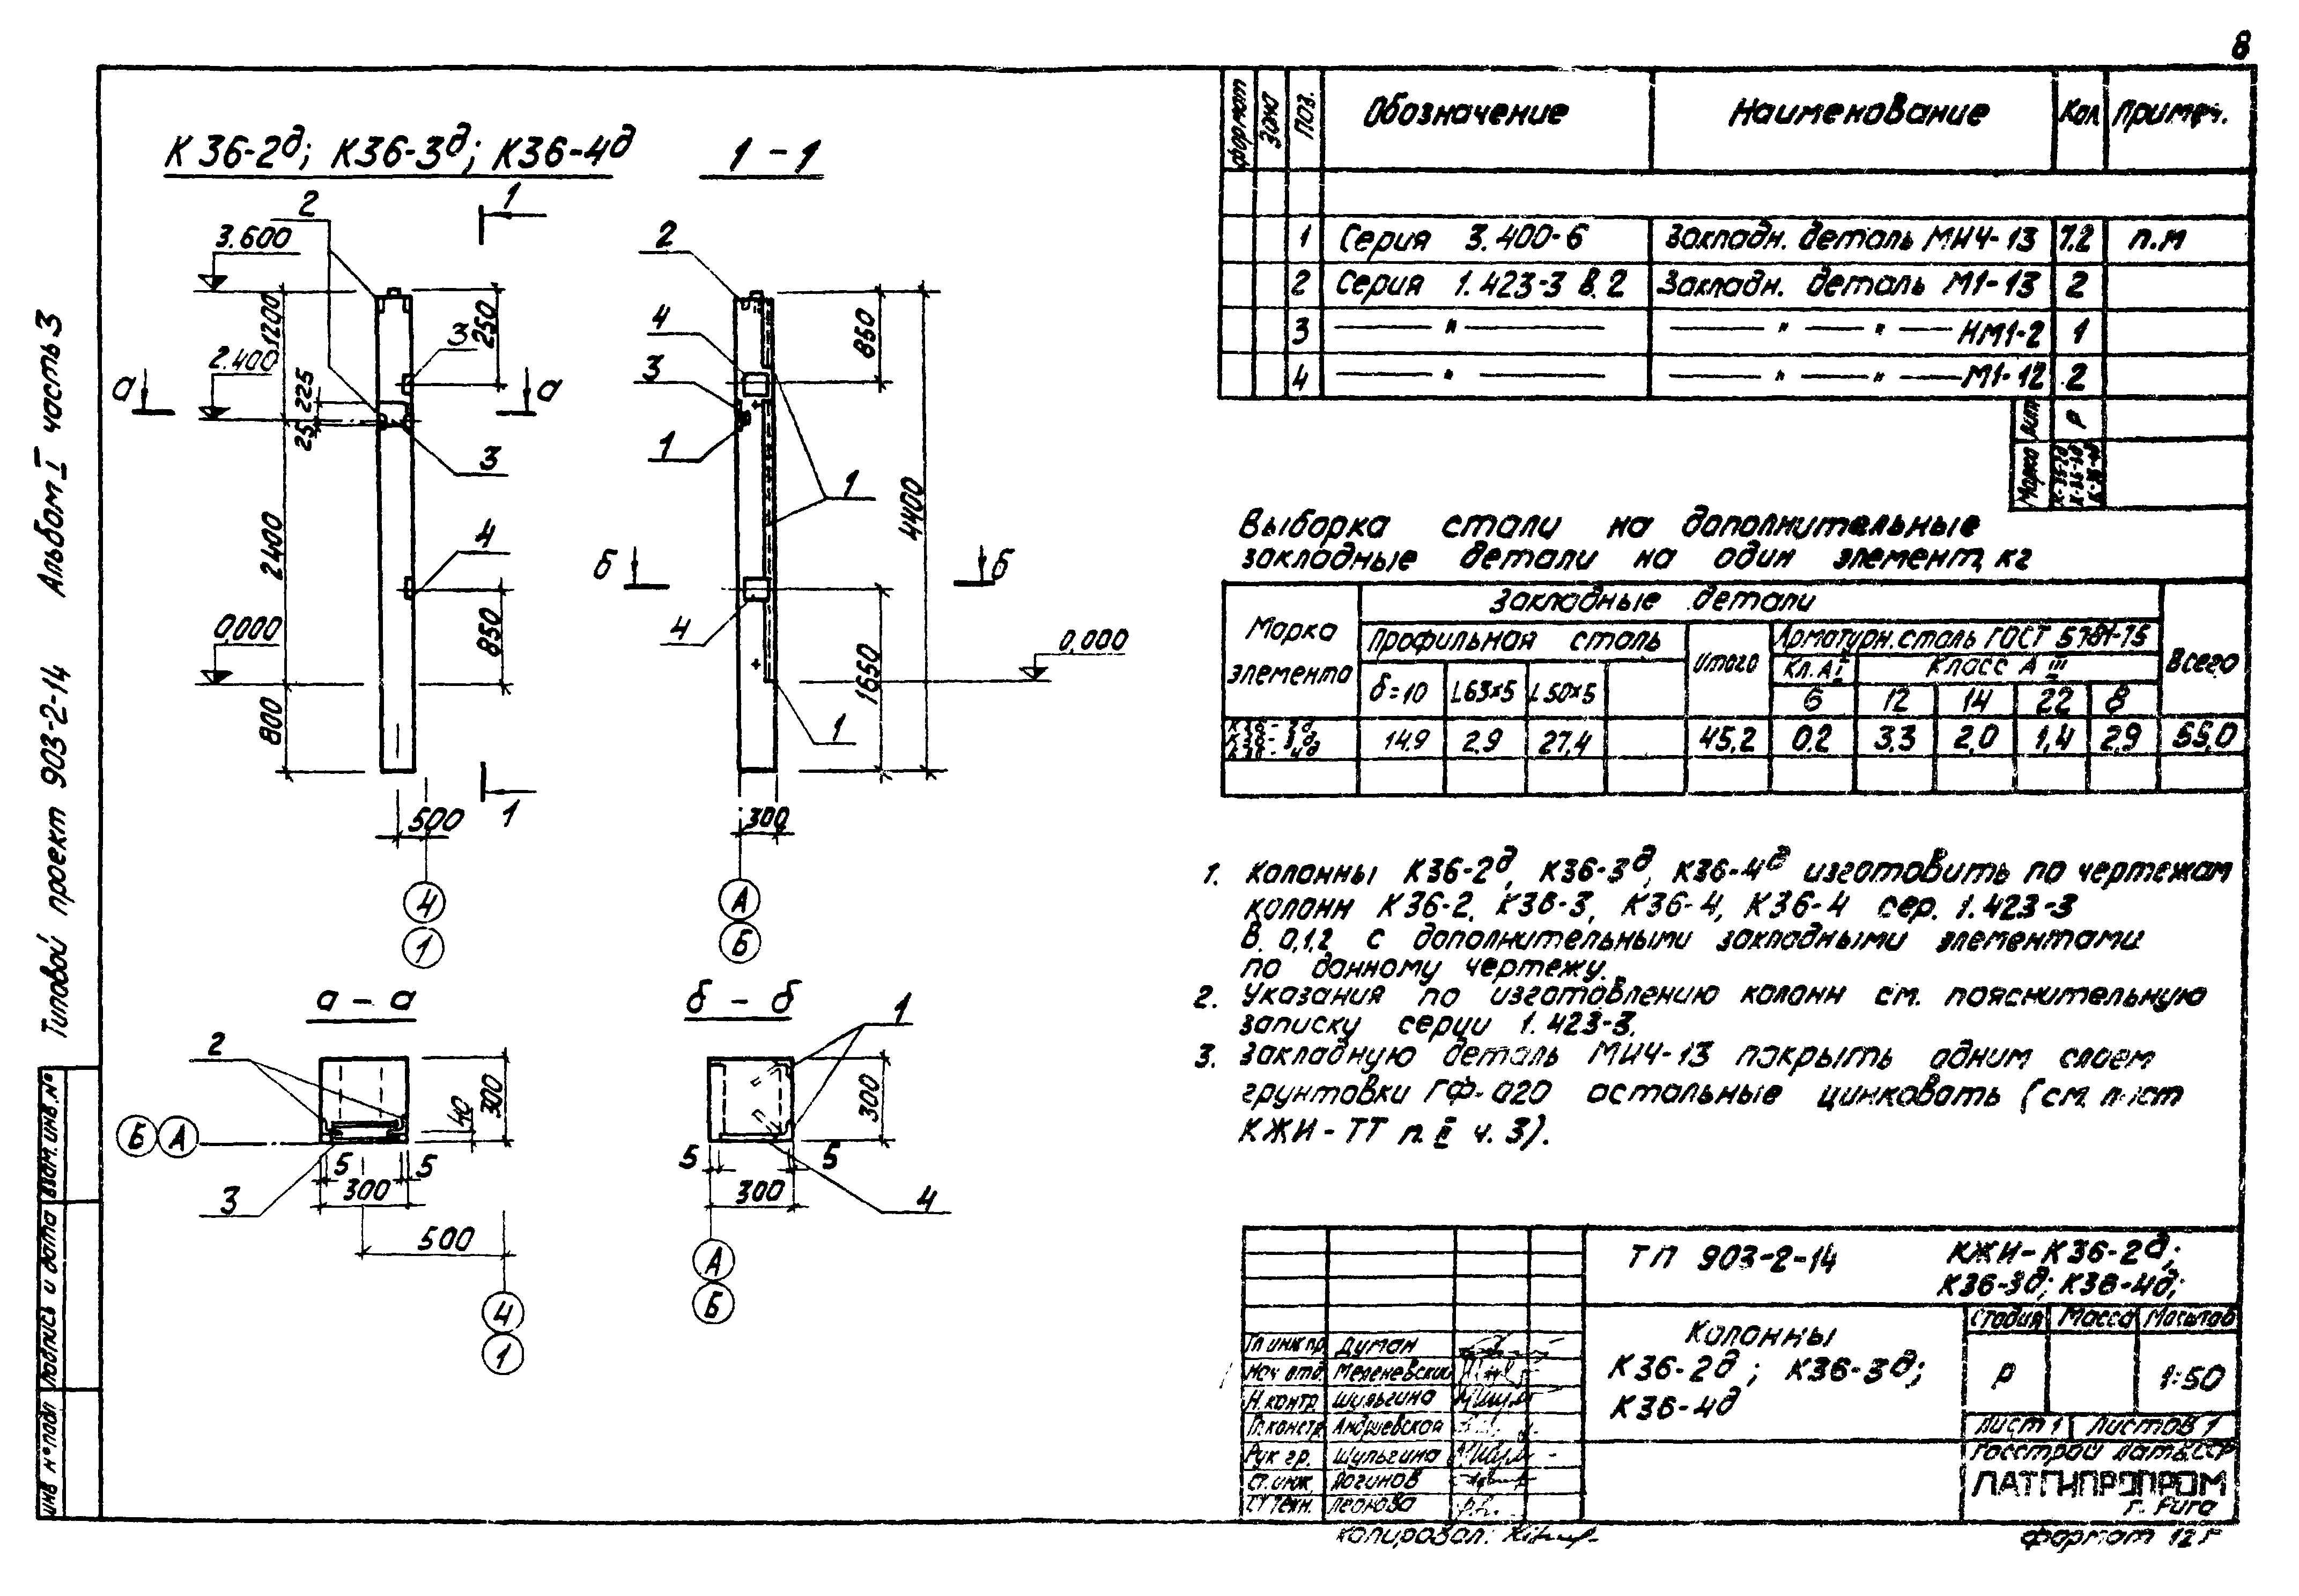 8
К36-2д; К36-3д; К36-4д
1 - 1
1
2
3.600
1200
250
3
2.400
225
25
а
а
3
2400
4
0,000
850
800
500
1
4
1
2
4
3
1
1
850
4400
б
б
4
1650
0.000
1
300
А
Б
а - а
2
Б А
300
40
5
5
300
3
500
4
1
б - б
1
300
5
5
300
4
А
Б
Типовой проект 903-2-14 Альбом I часть 3
Инв № подл Подпись и дата Взам. инв. №
формат Зона Поз. Обозначение Наименование Кол Примеч.
1 Серия 3.400-6 Закладн. деталь МН4-13 7.2 п.м
2 Серия 1.423-3 В.2 Закладн. деталь М1-13 2
3 — " — — " — " — НМ1-2 1
4 — " — — " — " — М1-12 2
Марка лит. Р
К-36-2д
К-36-3д
К-36-4д
Выборка стали на дополнительные
закладные детали на один элемент, кг
Марка элемента Закладные детали Всего
Профильная сталь Итого Арматурн. сталь ГОСТ 5781-75
Кл. АI Класс А III
δ=10 L63×5 L50×5 6 12 14 22 8
К36-2д
К36-3д
К36-4д
14,9 2,9 27,4 45,2 0,2 3,3 2,0 1,4 2,9 55,0
1. Колонны К36-2д, К36-3д, К36-4д изготовить по чертежам
колонн К36-2, К36-3, К36-4, К36-4 сер. 1.423-3
В. 0,1,2 с дополнительными закладными элементами
по данному чертежу.
2. Указания по изготовлению колонн см. пояснительную
записку серии 1.423-3.
3. Закладную деталь МН4-13 покрыть одним слоем
грунтовки ГФ-020 остальные цинковать (см. лист
КЖИ-ТТ п. II ч. 3).
ТП 903-2-14 КЖИ-К36-2д;
К36-3д; К36-4д;
Колонны
К36-2д; К36-3д;
К36-4д
Стадия Масса Масштаб
Р 1:50
Лист 1 Листов 1
Госстрой Латв.ССР
ЛАТГИПРОПРОМ
г. Рига
Гл инж пр Думан
Нач отд.
Н. контр. Шульгина
Гл. констр. Андриевская
Рук гр. Шульгина
Ст. инж Логинов
Ст техн. Леонова
Копировал:
Формат 12г